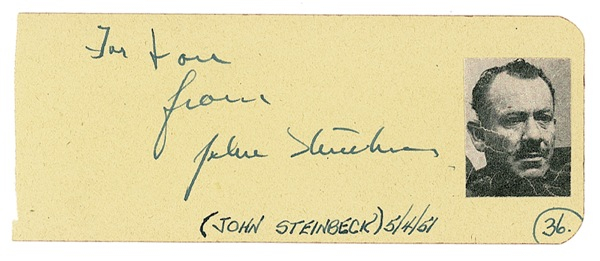 For
from
John Steinbeck
(JOHN STEINBECK) 5/4/51
36.